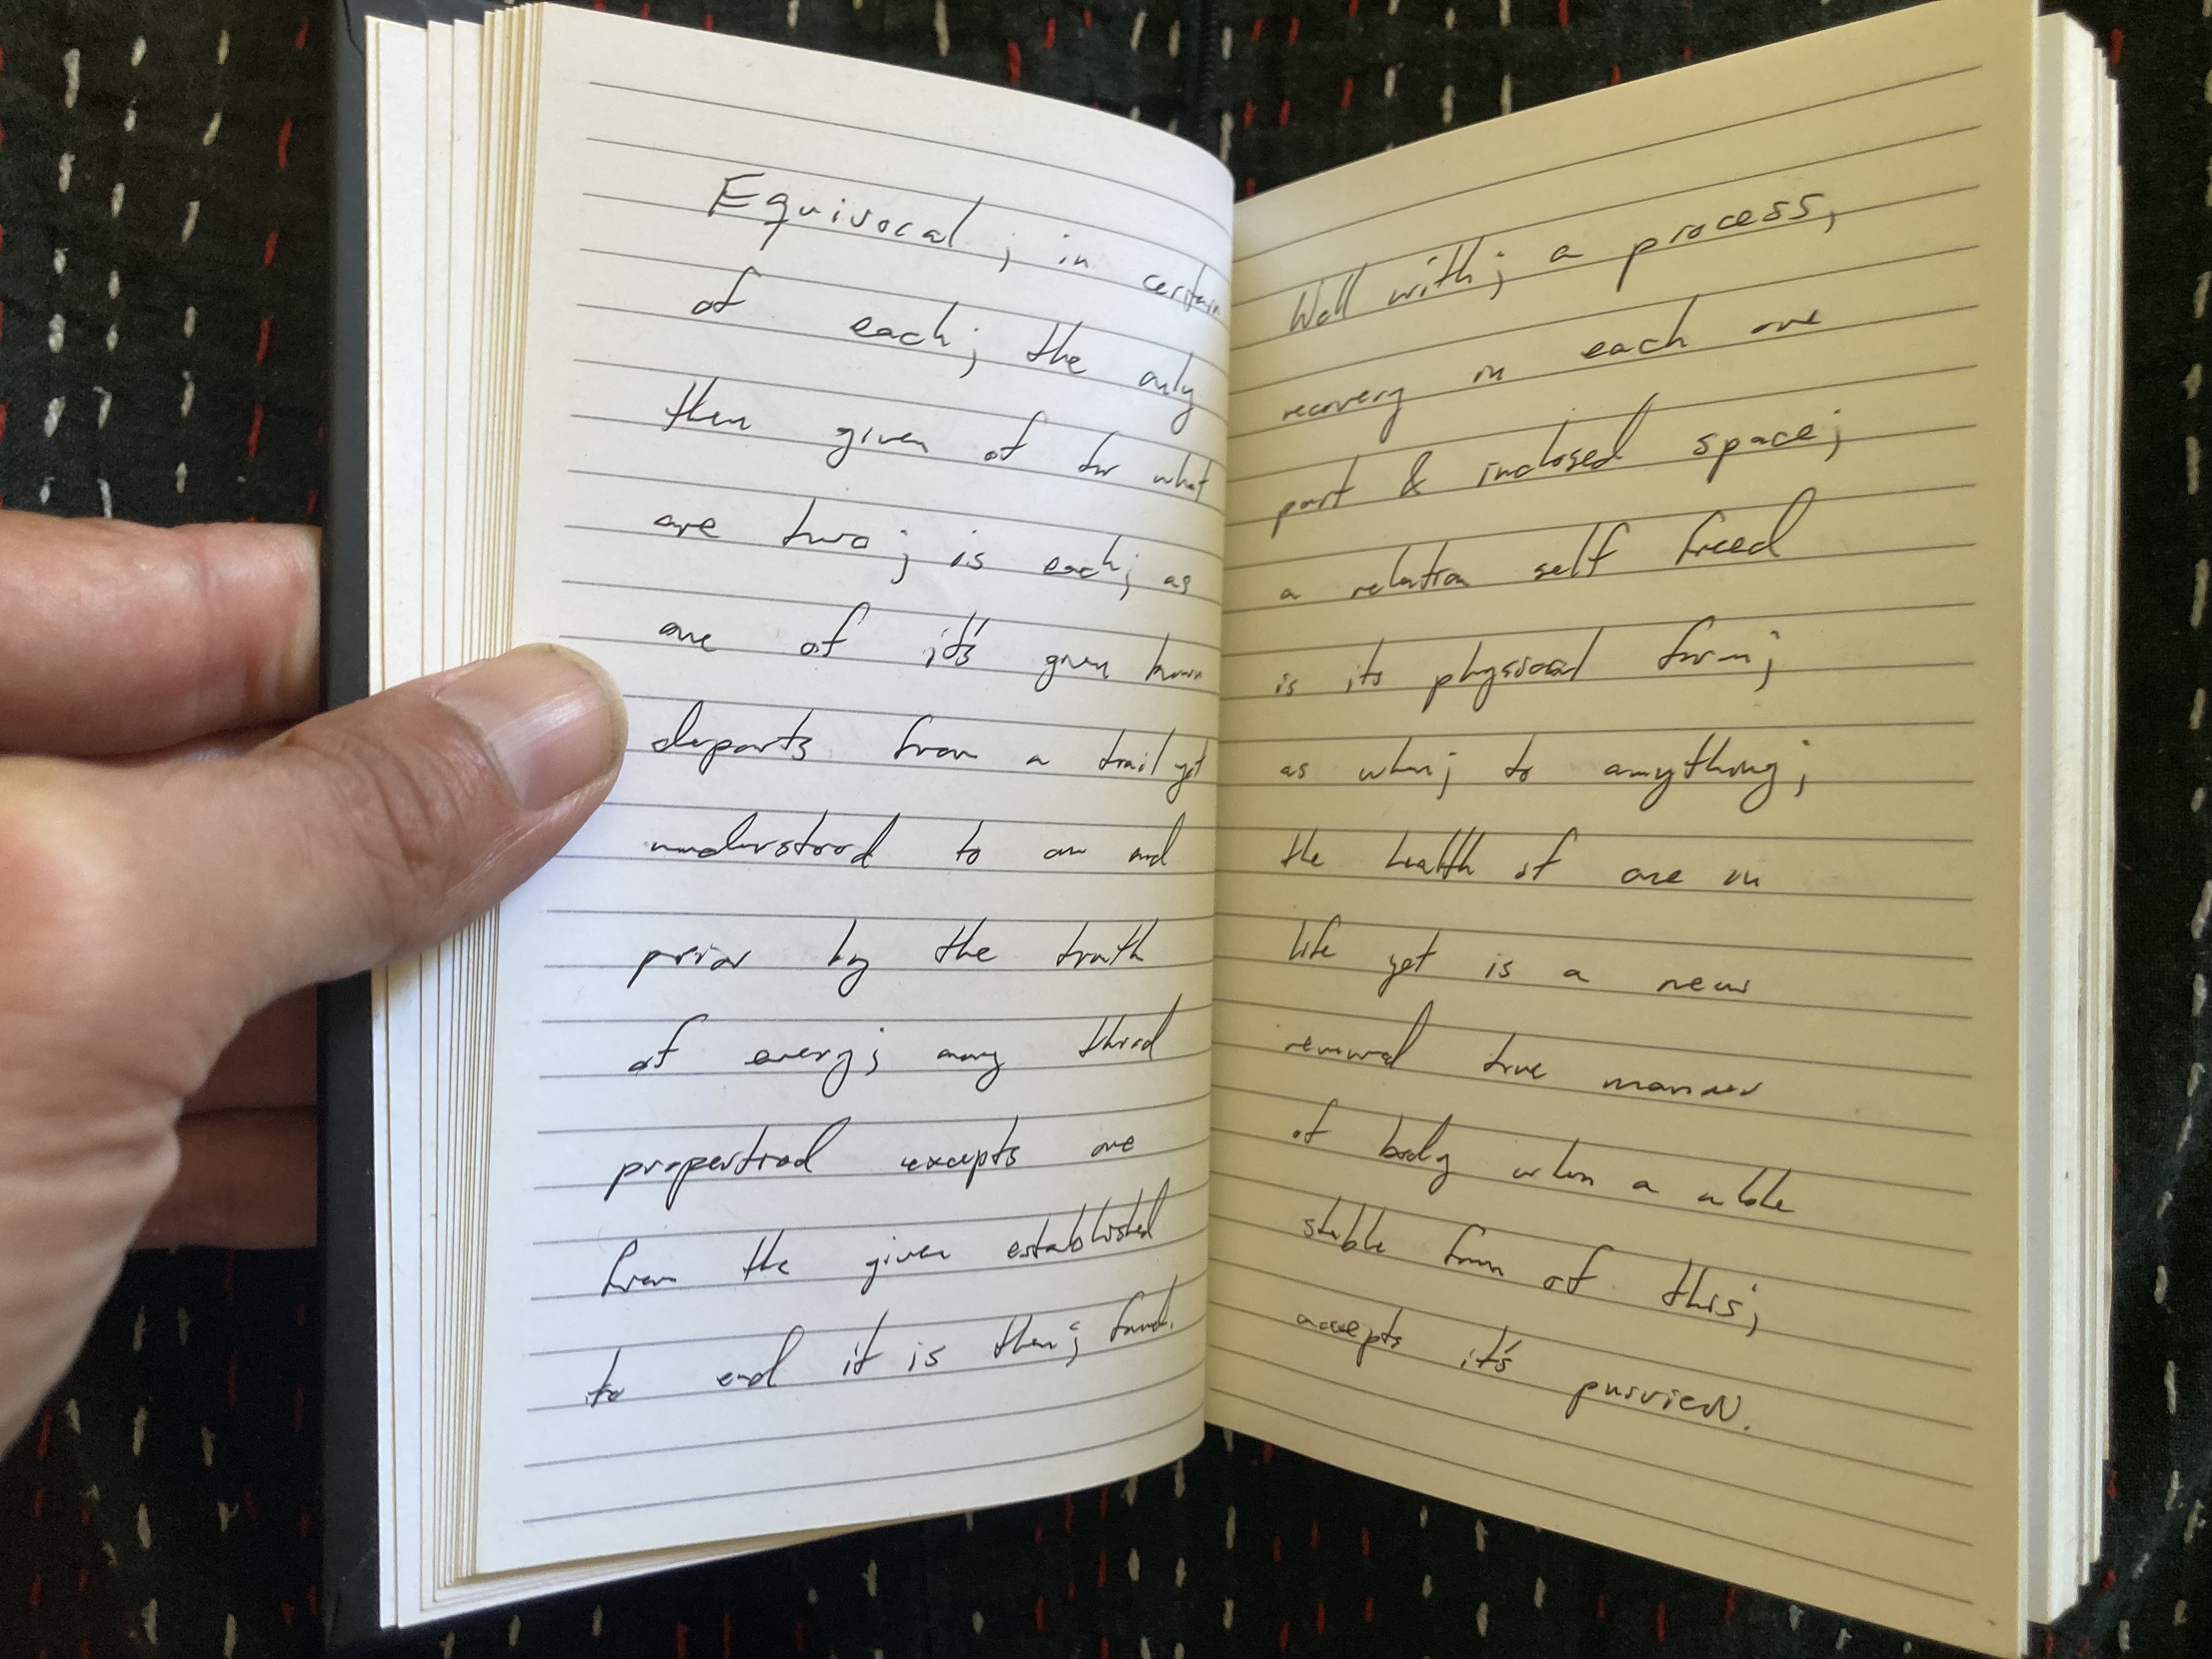 Equivocal; in certain
of each; the only
then given of for what
are two; is each; as
one of it's given known
departs from a trail yet
understood to an end
prior by the truth
of energy; any third
excepts one
from the given established
to end it is then; found.
Well with; a process,
recovery in each one
part & inclosed space;
a relation self freed
is its physical form;
as when; to anything;
the health of one in
life yet is a new
renewal true manner
of body when a able
stable form of this;
accepts it's purview.